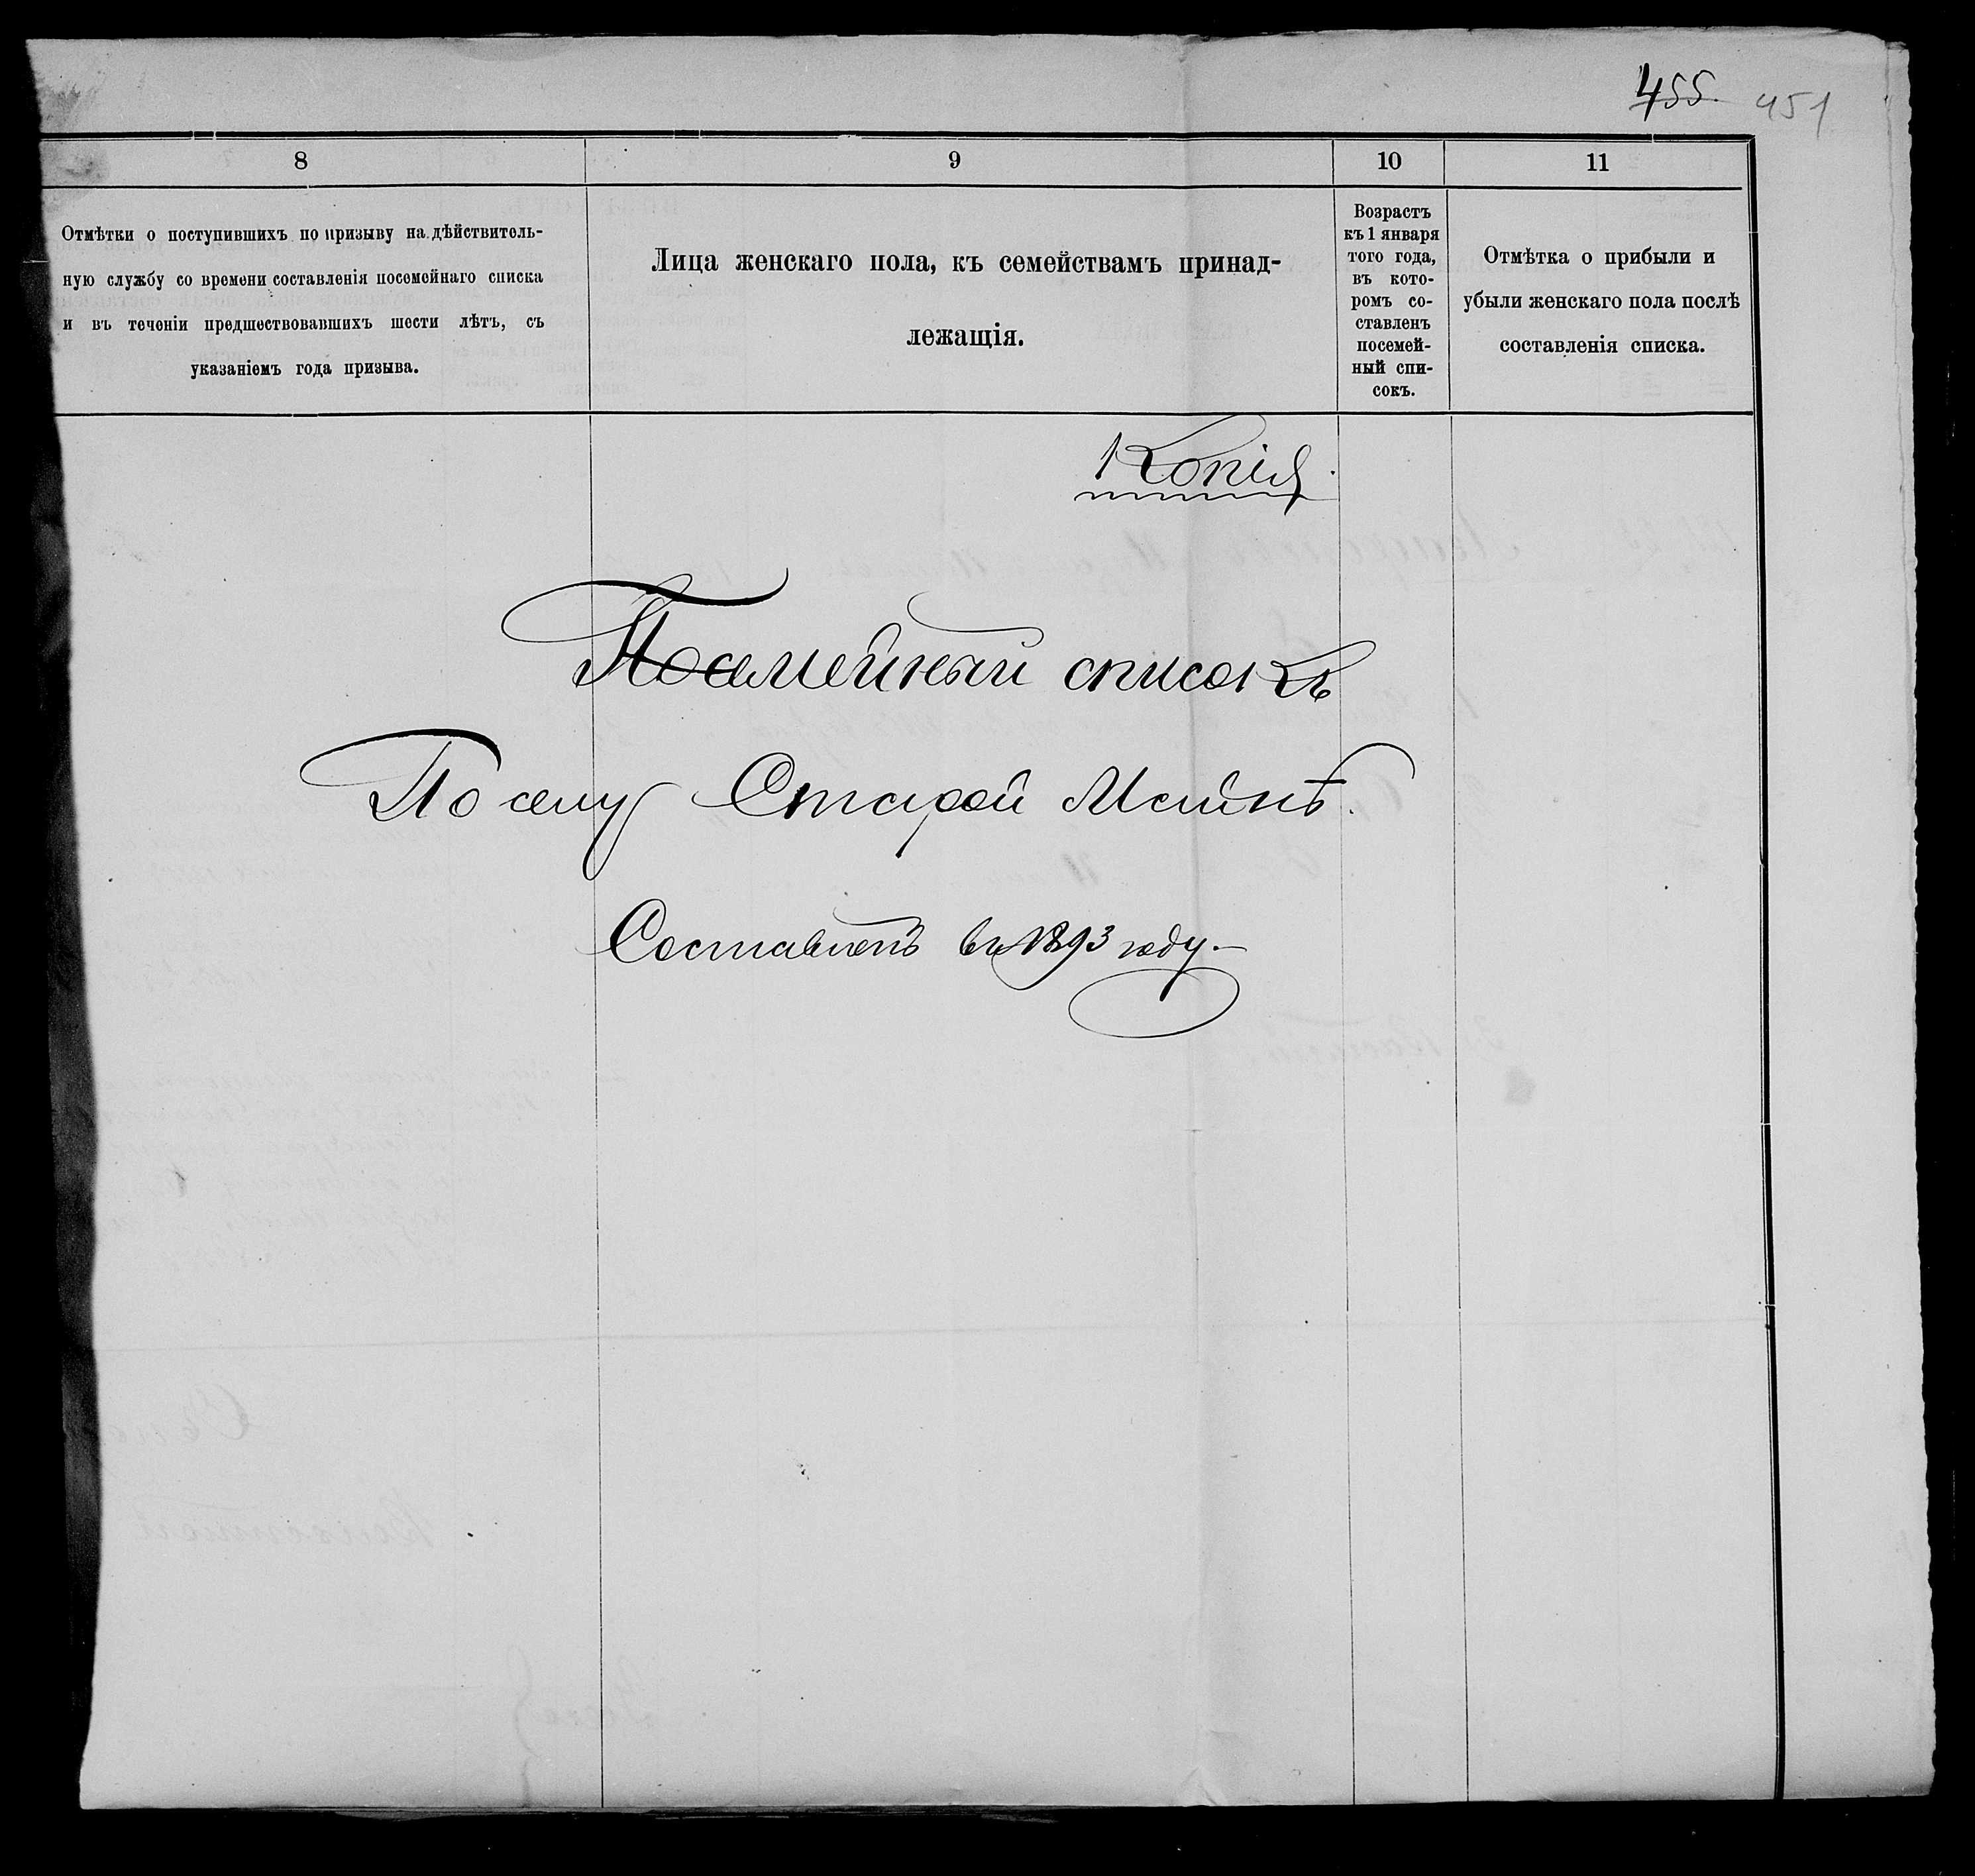 455. 451
8 9 10 11
Отмѣтки о поступившихъ по призыву на дѣйствитель-
ную службу со времени составленія посемейнаго списка
и въ теченіи предшествовавшихъ шести лѣтъ, съ
указаніемъ года призыва.
Лица женскаго пола, къ семействамъ принад-
лежащія.
Возрастъ
къ 1 января
того года,
въ кото-
ромъ со-
ставленъ
посемей-
ный спи-
сокъ.
Отмѣтка о прибыли и
убыли женскаго пола послѣ
составленія списка.
Копія.
Посемейный списокъ
По селу Старой Майнѣ.
Составленъ въ 1893 году.